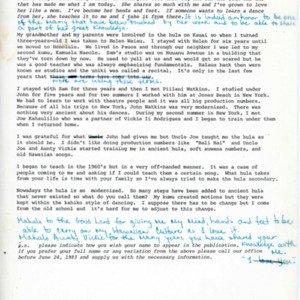 am today. I take from it. She shares so much with me and I've grown to love
her like a mom. I've become her hands and feet. Although I learned a dance
from her, she teaches it to me and I take it from there. It is indeed
of the many that have been touched by her work and to be able to share
a part of her great knowledge.
My grandmother and my parents were involved in the hula on Kauai when I turned
three-years-old and went to Helen Waiau. I stayed with Helen for six years until
we moved to Honolulu. We lived in Pauoa and through our neighbor I was led to my
second kumu, Kamuela Naeole. Sam's studio was on Nuuanu Avenue in a building that
they've torn down by now. He used to yell at us and we would get so scared but he
was a good teacher who always emphasized fundamentals. Halaus back then were
known as studios and the uniki was called a recital. It's only in the last few
years that
I stayed with Sam for three years and then I met Piilani Watkins. I studied under
John for five years and for two summers I worked with him at Jones Beach in New York.
We had to learn to work with theatre people and it was all big production numbers.
Because of all his trips to New York, John Watkins was very modernized. There was
nothing very ancient about his dances. During my second summer in New York, I met
Joe Kahaulilio who was a partner of Victoria Rodrigues and I began to train under them
when I returned home.
I was grateful for what John had given me but Uncle Joe taught me the hula as
it should be. I didn't like doing production numbers like "Bali Hai" and Uncle
Joe and Aunty Vickie started training me in ancient hula, soft auwana numbers, and
old Hawaiian songs.
I began to teach in the 1960's but in a very off-handed manner. It was a case of
people coming to me and asking if I could teach them a certain song. What hula takes
from your life is time with your family so I've always tried to make the hula secondary.
Nowadays the hula is so modernized. So many steps have been added to ancient hula
that never existed so what do you call them? My kumu created motions but they were
kept within the kahiko style of dancing. I suppose there has to be change but I come
from the old school and it's hard for me to adjust to this change.
Mahalo to the good Lord for giving me my mind, hands and feet to be
able to carry on my Hawaiian Culture as I love it.
Mahalo Aunty for the many years you have shared your
knowledge with
me.
p.s. please indicate how you wish your name to appear in the publication.
if you prefer your full name or any variation from the above please call our office
before June 24, 1983 and supply us with the necessary information.